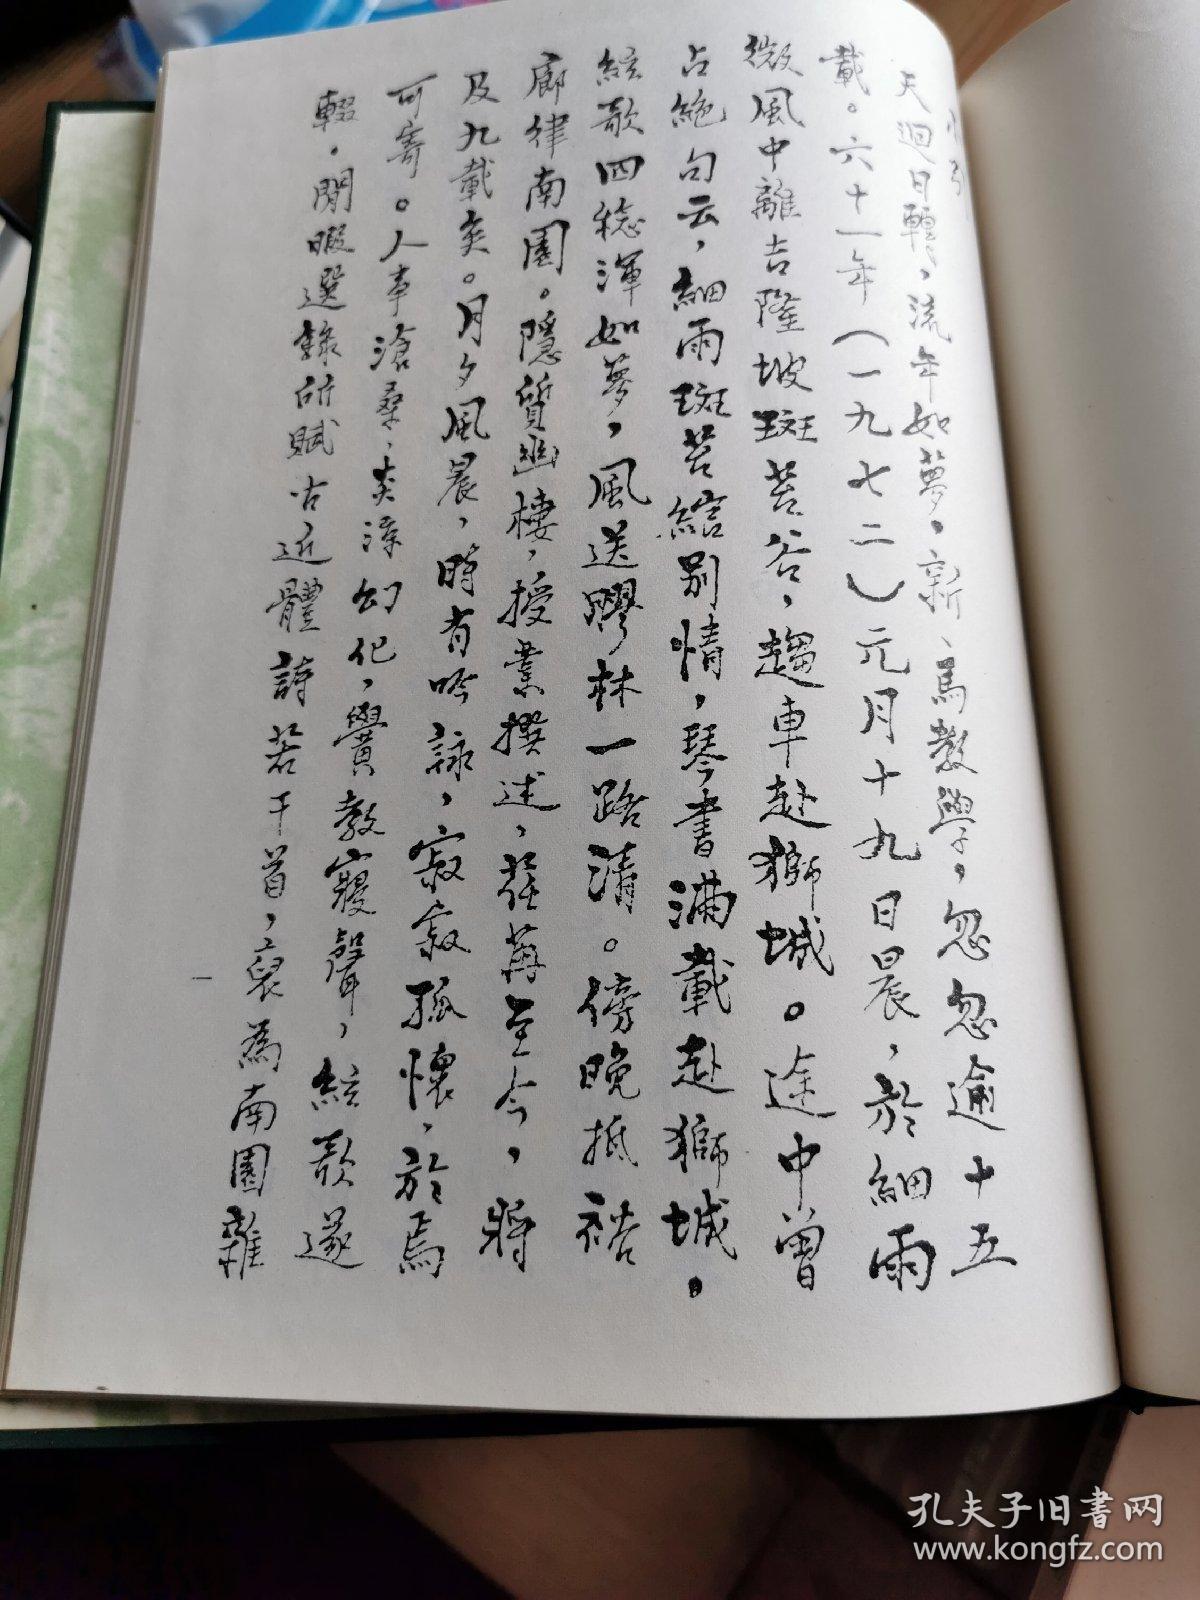 小引
天迴日轉，流年如夢，新、馬教學，忽忽逾十五
載。六十一年（一九七二）元月十九日晨，於細雨
微風中離吉隆坡斑苔谷，趨車赴獅城。途中曾
占絕句云，細雨斑苔綰別情，琴書滿載赴獅城，
絃歌四稔渾如夢，風送膠林一路清。傍晚抵裕
廊律南園。隱質幽棲，授業撰述，荏苒至今，將
及九載矣。月夕風晨，時有吟詠，寂寂孤懷，於焉
可寄。人事滄桑，炎漳幻化，黌教寢聲，絃歌遂
輟，閒暇選錄所賦古近體詩若干首，裒為南園雜
一
孔夫子旧书网
www.kongfz.com